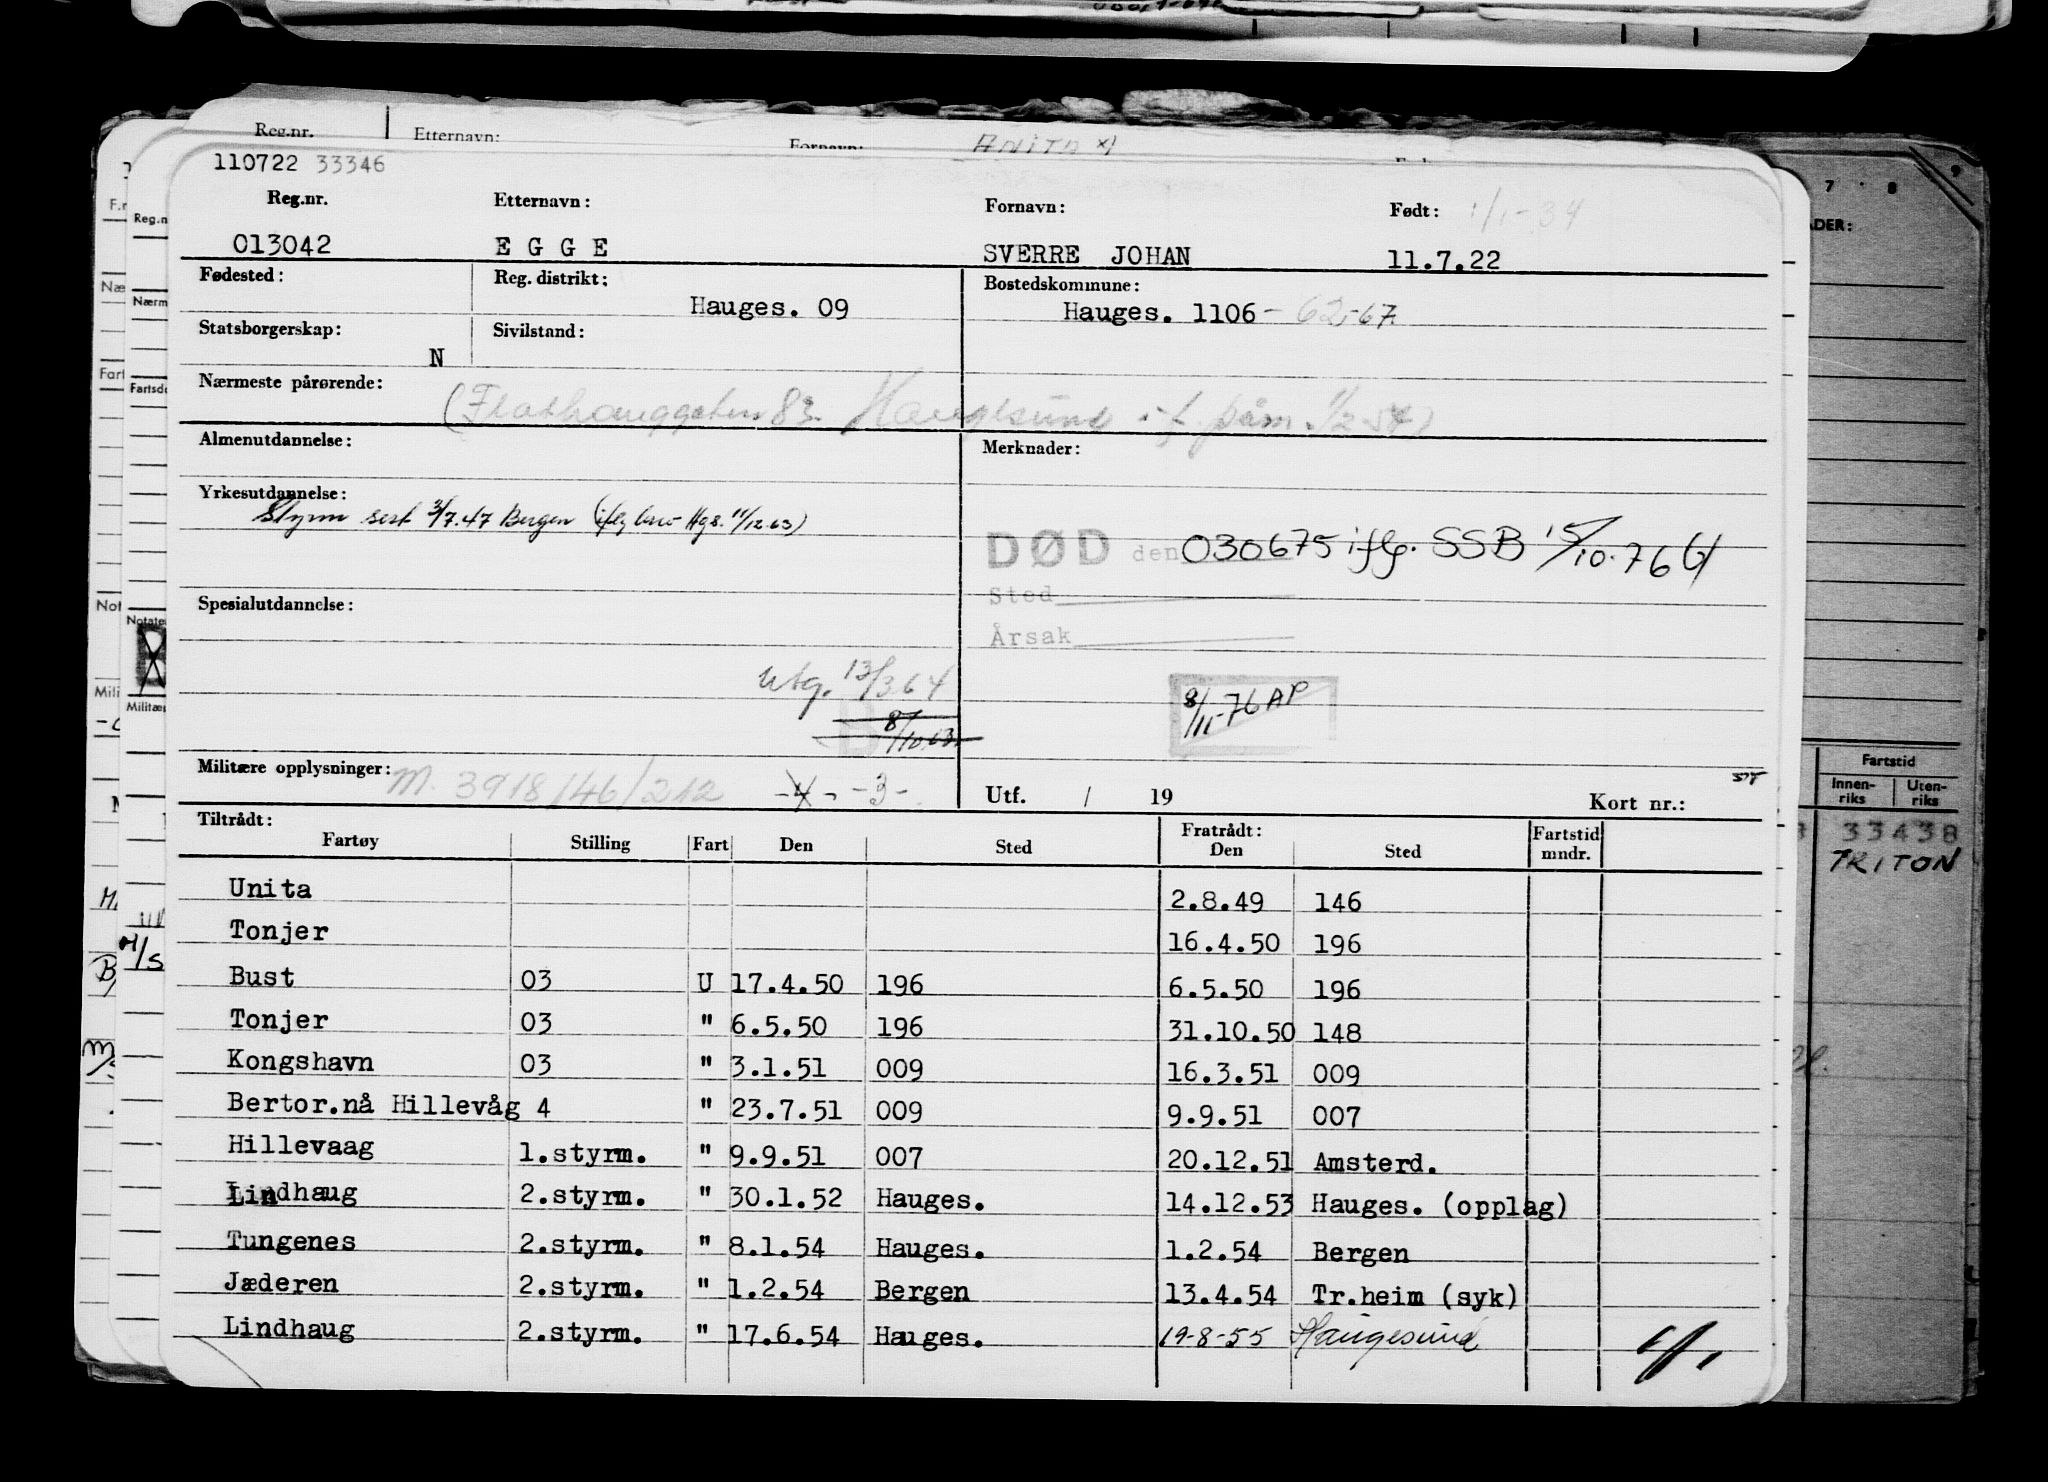 Reg.nr. Etternavn: Fornavn:
110722 33346
Reg.nr. Etternavn: Fornavn: Født: 1/1-34
013042 E G G E SVERRE JOHAN 11.7.22
Fødested: Reg. distrikt: Bostedskommune:
Hauges. 09 Hauges. 1106 - 62,-67.
Statsborgerskap: Sivilstand:
N
Nærmeste pårørende:
(Flathauggaten 83 Haugesund i.f. påm. 1/2 54)
Almenutdannelse: Merknader:
Yrkesutdannelse:
Styrm sert 3/7.47 Bergen (iflg brev Hgs. 11/12.63)
DØD den 030675 iflg. SSB 15/10.76
Sted
Spesialutdannelse:
Årsak
Utg. 13/3 64
8/10.63
8/11-76 AP
Militære opplysninger: M. 3918/46/212 -4- -3-
Utf. / 19 Kort nr.:
Tiltrådt: Fratrådt: Fartstid
Fartøy Stilling Fart Den Sted Den Sted mndr.
Unita 2.8.49 146
Tonjer 16.4.50 196
Bust 03 U 17.4.50 196 6.5.50 196
Tonjer 03 " 6.5.50 196 31.10.50 148
Kongshavn 03 " 3.1.51 009 16.3.51 009
Bertor.nå Hillevåg 4 " 23.7.51 009 9.9.51 007
Hillevaag 1.styrm. " 9.9.51 007 20.12.51 Amsterd.
Lindhaug 2.styrm. " 30.1.52 Hauges. 14.12.53 Hauges. (opplag)
Tungenes 2.styrm. " 8.1.54 Hauges. 1.2.54 Bergen
Jæderen 2.styrm. " 1.2.54 Bergen 13.4.54 Tr.heim (syk)
Lindhaug 2.styrm. " 17.6.54 Hauges. 19-8-55 Haugesund
7 8 9
Fartstid
Innen-riks Uten-riks
33438
TRITON